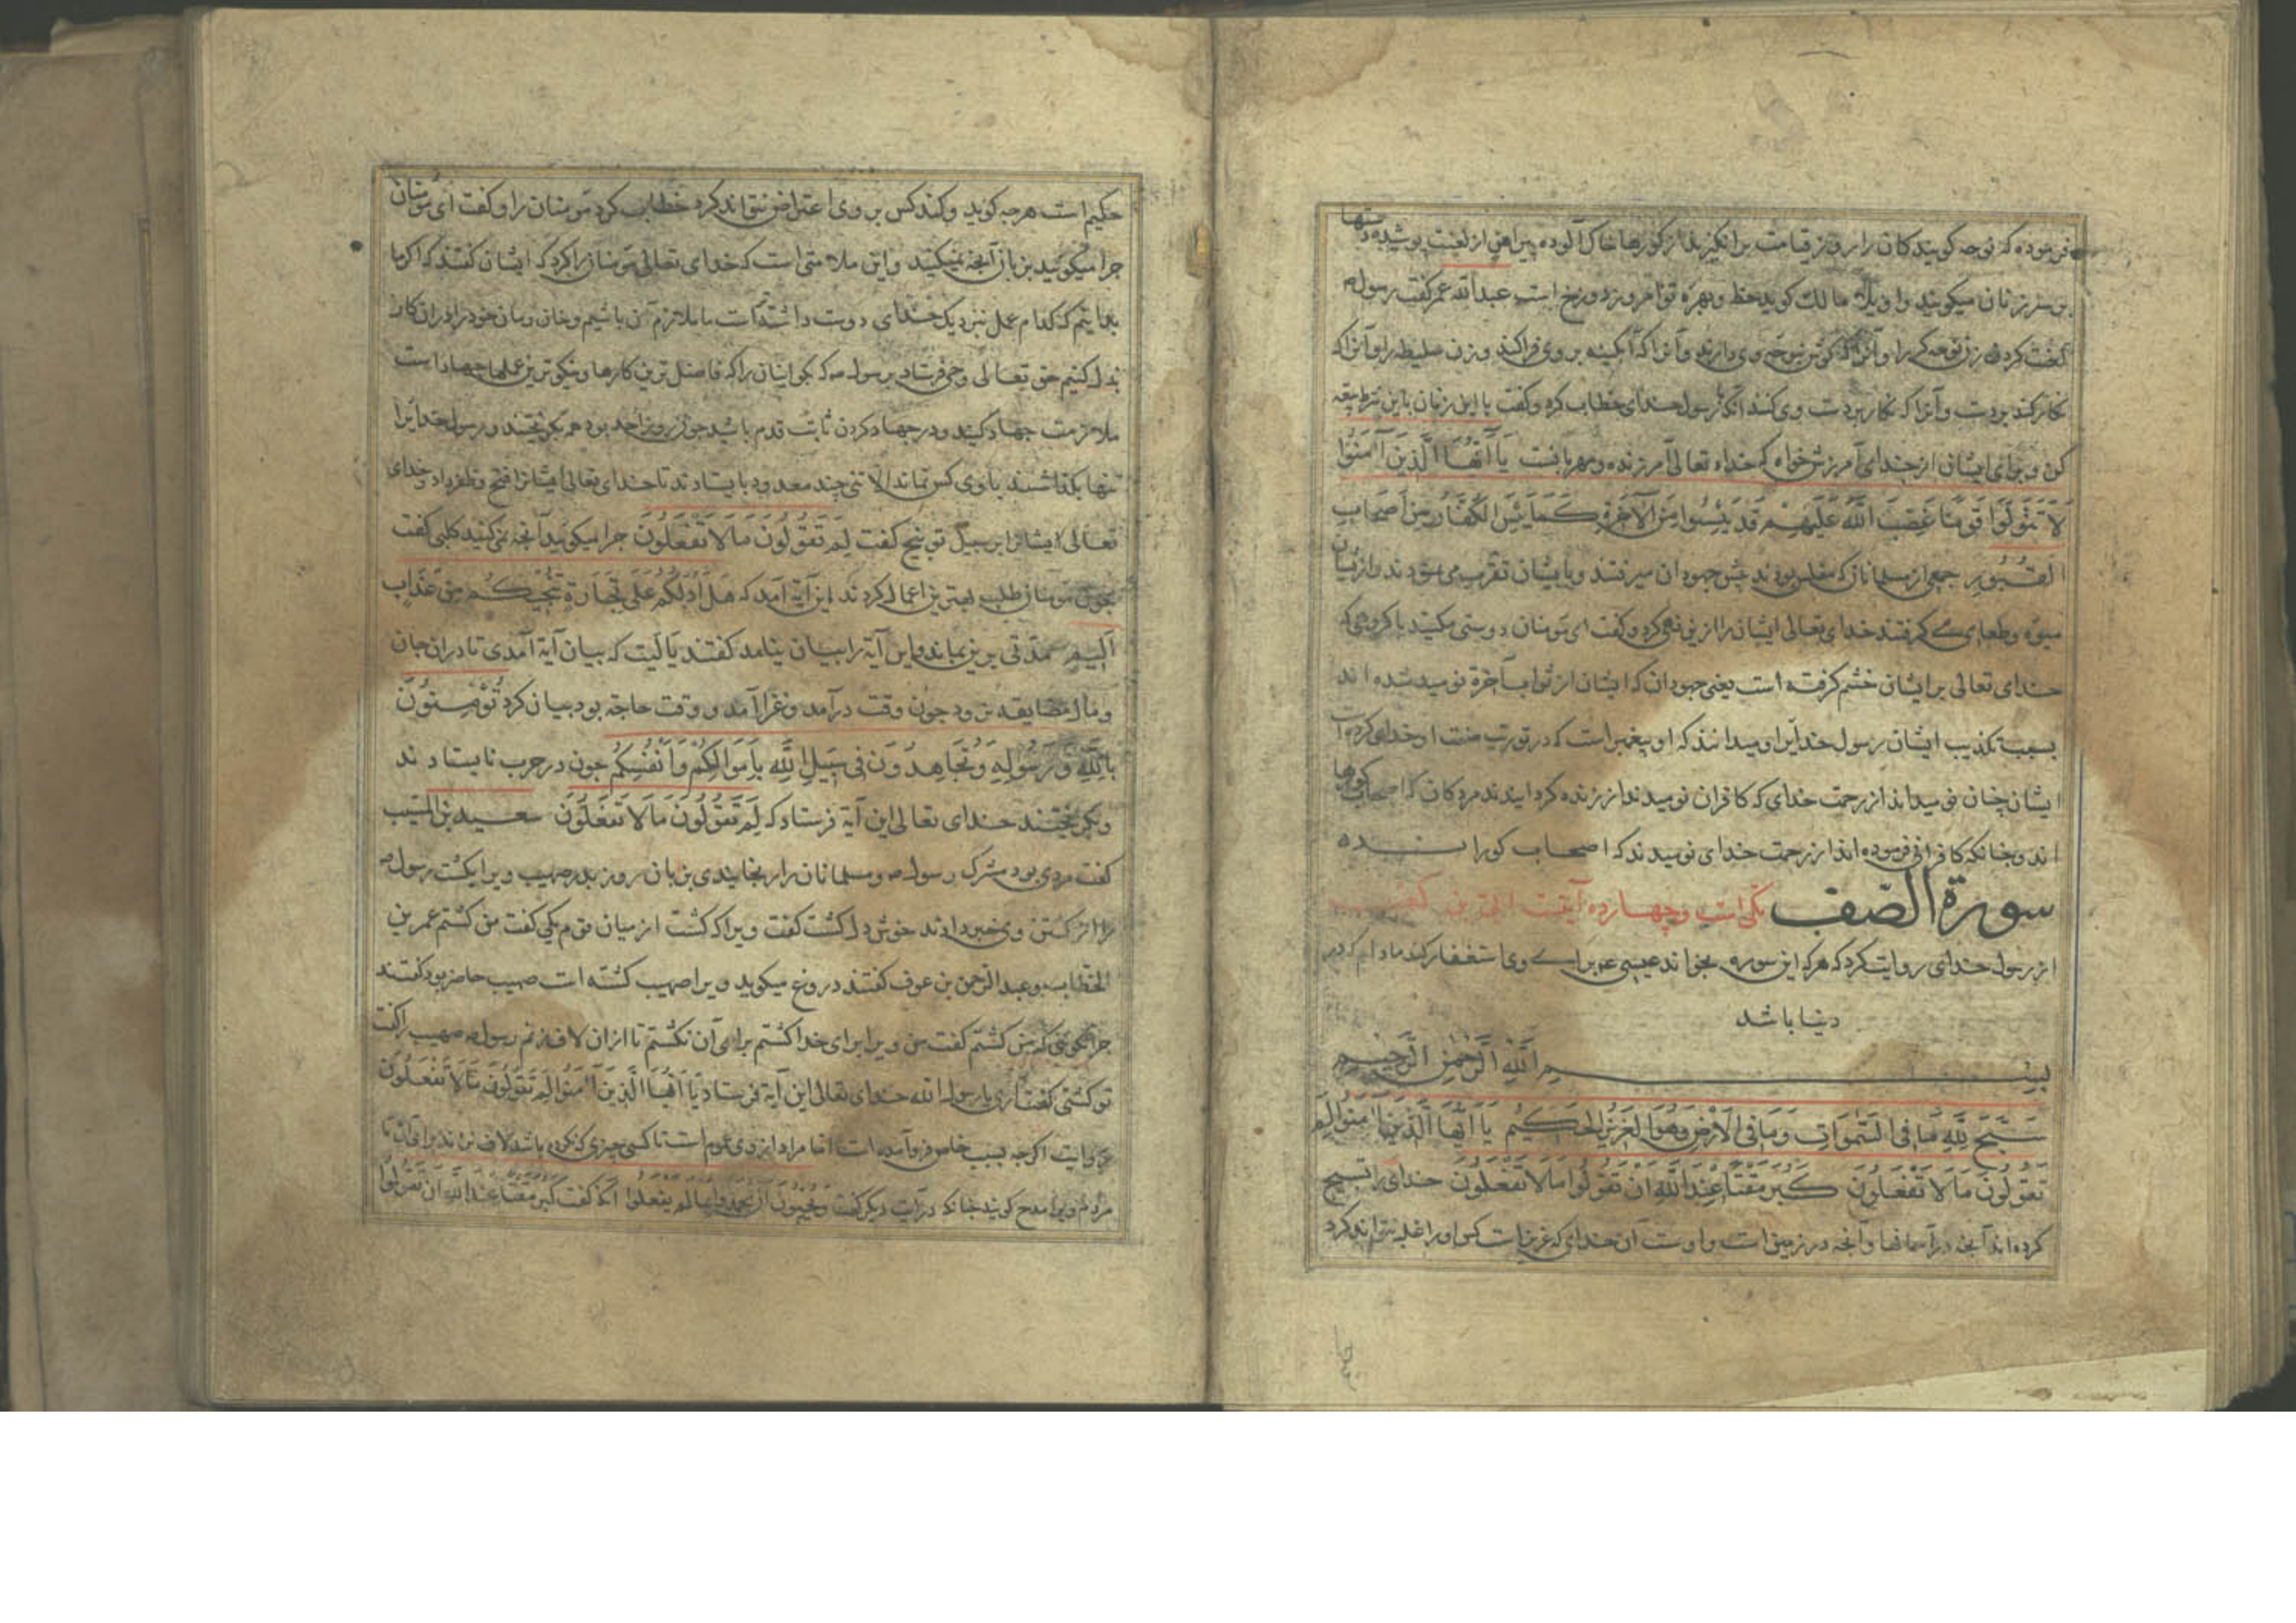 فرموده که نوحه کویندکان را روز قیامت برانکیزند از کورها خاک آلوده پیراهن از لعنت پوشیده دستها
بر سر زنان میکویند واویلاه مالک کوید حظ و بهره تو امروز دوزخ است عبدالله عمر کفت رسول
لعنت کرد زن نوحه کر را و آنرا که کوش بنوحه وی دارند و آنرا که آبکینه بر وی فرا کند و زن سلیطه را و آنرا که
نکار کند بردست و آنرا که نکار بردست وی کنند انکه رسول خدای خطاب کرد و کفت با این زنان باین شرط بیعة
کن و برای ایشان از خدای آمرزش خواه که خداء تعالی آمرزنده و مهربانست یَا أَیُّهَا الَّذِینَ آمَنُوا
لَا تَتَوَلَّوْا قَوْمًا غَضِبَ اللَّهُ عَلَیْهِمْ قَدْ یَئِسُوا مِنَ الْآخِرَةِ کَمَا یَئِسَ الْکُفَّارُ مِنْ أَصْحَابِ
الْقُبُورِ جمعی از مسلمانان که مفلس بودند پیش جهودان میرفتند و بایشان تقرب می نمودند و از ایشان
میوه و طعامی می کرفتند خدای تعالی ایشان را ازین نهی کرد و کفت ای مومنان دوستی مکنید با کروهی که
خدای تعالی بر ایشان خشم کرفته است یعنی جهودان که ایشان از ثواب آخرة نومید شده اند
بسبب تکذیب ایشان رسول خدایرا و میدانند که او پیغمبر است که در توریت صفت او خدای کرده است
ایشان چنان نومیدانداز رحمت خدای که کافران نومیدند از زنده کردایندند مردکان که اصحاب کورها
اند و چنانکه کافرانی فرموده اند از رحمت خدای نومیدند که اصحاب کور انـــده
سورة الصّف مکی است و چهارده آیتست
از رسول خدای روایت کرد که هرکه این سوره بخواند عیسی ع برای وی استغفار کند مادام که در
دنیا باشد
بسم الله الرحمن الرحیم
سَبَّحَ لِلَّهِ مَا فِی السَّمٰوَاتِ وَمَا فِی الْأَرْضِ وَهُوَ الْعَزِیزُ الْحَکِیمُ یَا أَیُّهَا الَّذِینَ آمَنُوا لِمَ
تَقُولُونَ مَا لَا تَفْعَلُونَ کَبُرَ مَقْتًا عِنْدَ اللَّهِ أَنْ تَقُولُوا مَا لَا تَفْعَلُونَ خدای را تسبیح
کرده اند آنچه در آسمانها و آنچه در زمین است و اوست آن خدای که عزیزست کس او را غلبه نتواند کرد
حکیم است هرچه کوید و کند کس بر وی اعتراض نتواند کرد خطاب کرد مومنان را و کفت ای مومنان
چرا میکوئید بزبان آنچه نمیکنید و این ملامتی است که خدای تعالی مومنانرا کرد که ایشان کفتند که اکر ما
بدانیم که کدام عمل نزدیک خدای دوست داشته است ما ملازم آن باشیم و جان و مان خود را در ان کار
بذل کنیم حق تعالی وحی فرستاد برسول که بکو ایشان را که فاضل ترین کارها و نیکوترین عملها جهاد است
ملازمت جهاد کنید و در جهاد کردن ثابت قدم باشید چون روز احد بود همه بکریختند و رسول خدایرا
تنها بکذاشتند باوی کس نماند الا تنی چند معدود بایستادند تا خدای تعالی ایشانرا فتح و ظفر داد و خدای
تعالی ایشانرا بر سبیل توبیخ کفت لِمَ تَقُولُونَ مَا لَا تَفْعَلُونَ چرا میکوئید آنچه نمی کنید کلبی کفت
چون مومنان طلب بهترین اعمال کردند این آیة آمد که هَلْ أَدُلُّکُمْ عَلَی تِجَارَةٍ تُنْجِیکُمْ مِنْ عَذَابٍ
أَلِیمٍ مدتی برین بماند و این آیة را بیان نیامد کفتند یا لیت که بیان آیة آمدی تا در ان جان
و مال مضایقه نرود چون وقت درآمد و غزا آمد و وقت حاجة بود بیان کرد تُؤْمِنُونَ
بِاللَّهِ وَرَسُولِهِ وَتُجَاهِدُونَ فِی سَبِیلِ اللَّهِ بِأَمْوَالِکُمْ وَأَنْفُسِکُمْ چون در حرب نایستادند
و بکریختند خدای تعالی این آیة فرستاد که لِمَ تَقُولُونَ مَا لَا تَفْعَلُونَ سعید بن المسیب
کفت مردی بود مشرک رسول و مسلمانان را رنجانیدی بزبان روز بدر صهیب ویرا بکشت رسول
را از کشتن وی خبر دادند خوش دل کشت کفت ویرا که کشت از میان قوم یکی کفت من کشتم عمر بن
الخطاب و عبدالرحمن بن عوف کفتند دروغ میکوید ویرا صهیب کشته است صهیب حاضر بود کفتند
چرا نکوئی که من کشتم کفت من ویرا برای خدا کشتم برای آن نکشتم تا ازان لاف زنم رسول صهیب را کفت
تو کشتی کفت آری یا رسول الله خدای تعالی این آیة فرستاد یَا أَیُّهَا الَّذِینَ آمَنُوا لِمَ تَقُولُونَ مَا لَا تَفْعَلُونَ
آیت اکرچه بسبب خاص فرو آمده است اما مراد از وی عموم است تا کسی چیزی که نکرده باشد لاف نزند برای آن تا
مردم ویرا مدح کویند چنانکه در آیت دیکر کفت وَیُحِبُّونَ أَنْ یُحْمَدُوا بِمَا لَمْ یَفْعَلُوا آنکه کفت کَبُرَ مَقْتًا عِنْدَ اللَّهِ أَنْ تَقُولُوا